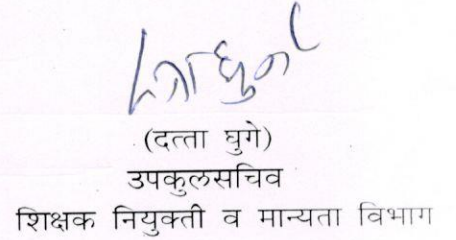 (दत्ता घुगे)
उपकुलसचिव
शिक्षक नियुक्ती व मान्यता विभाग